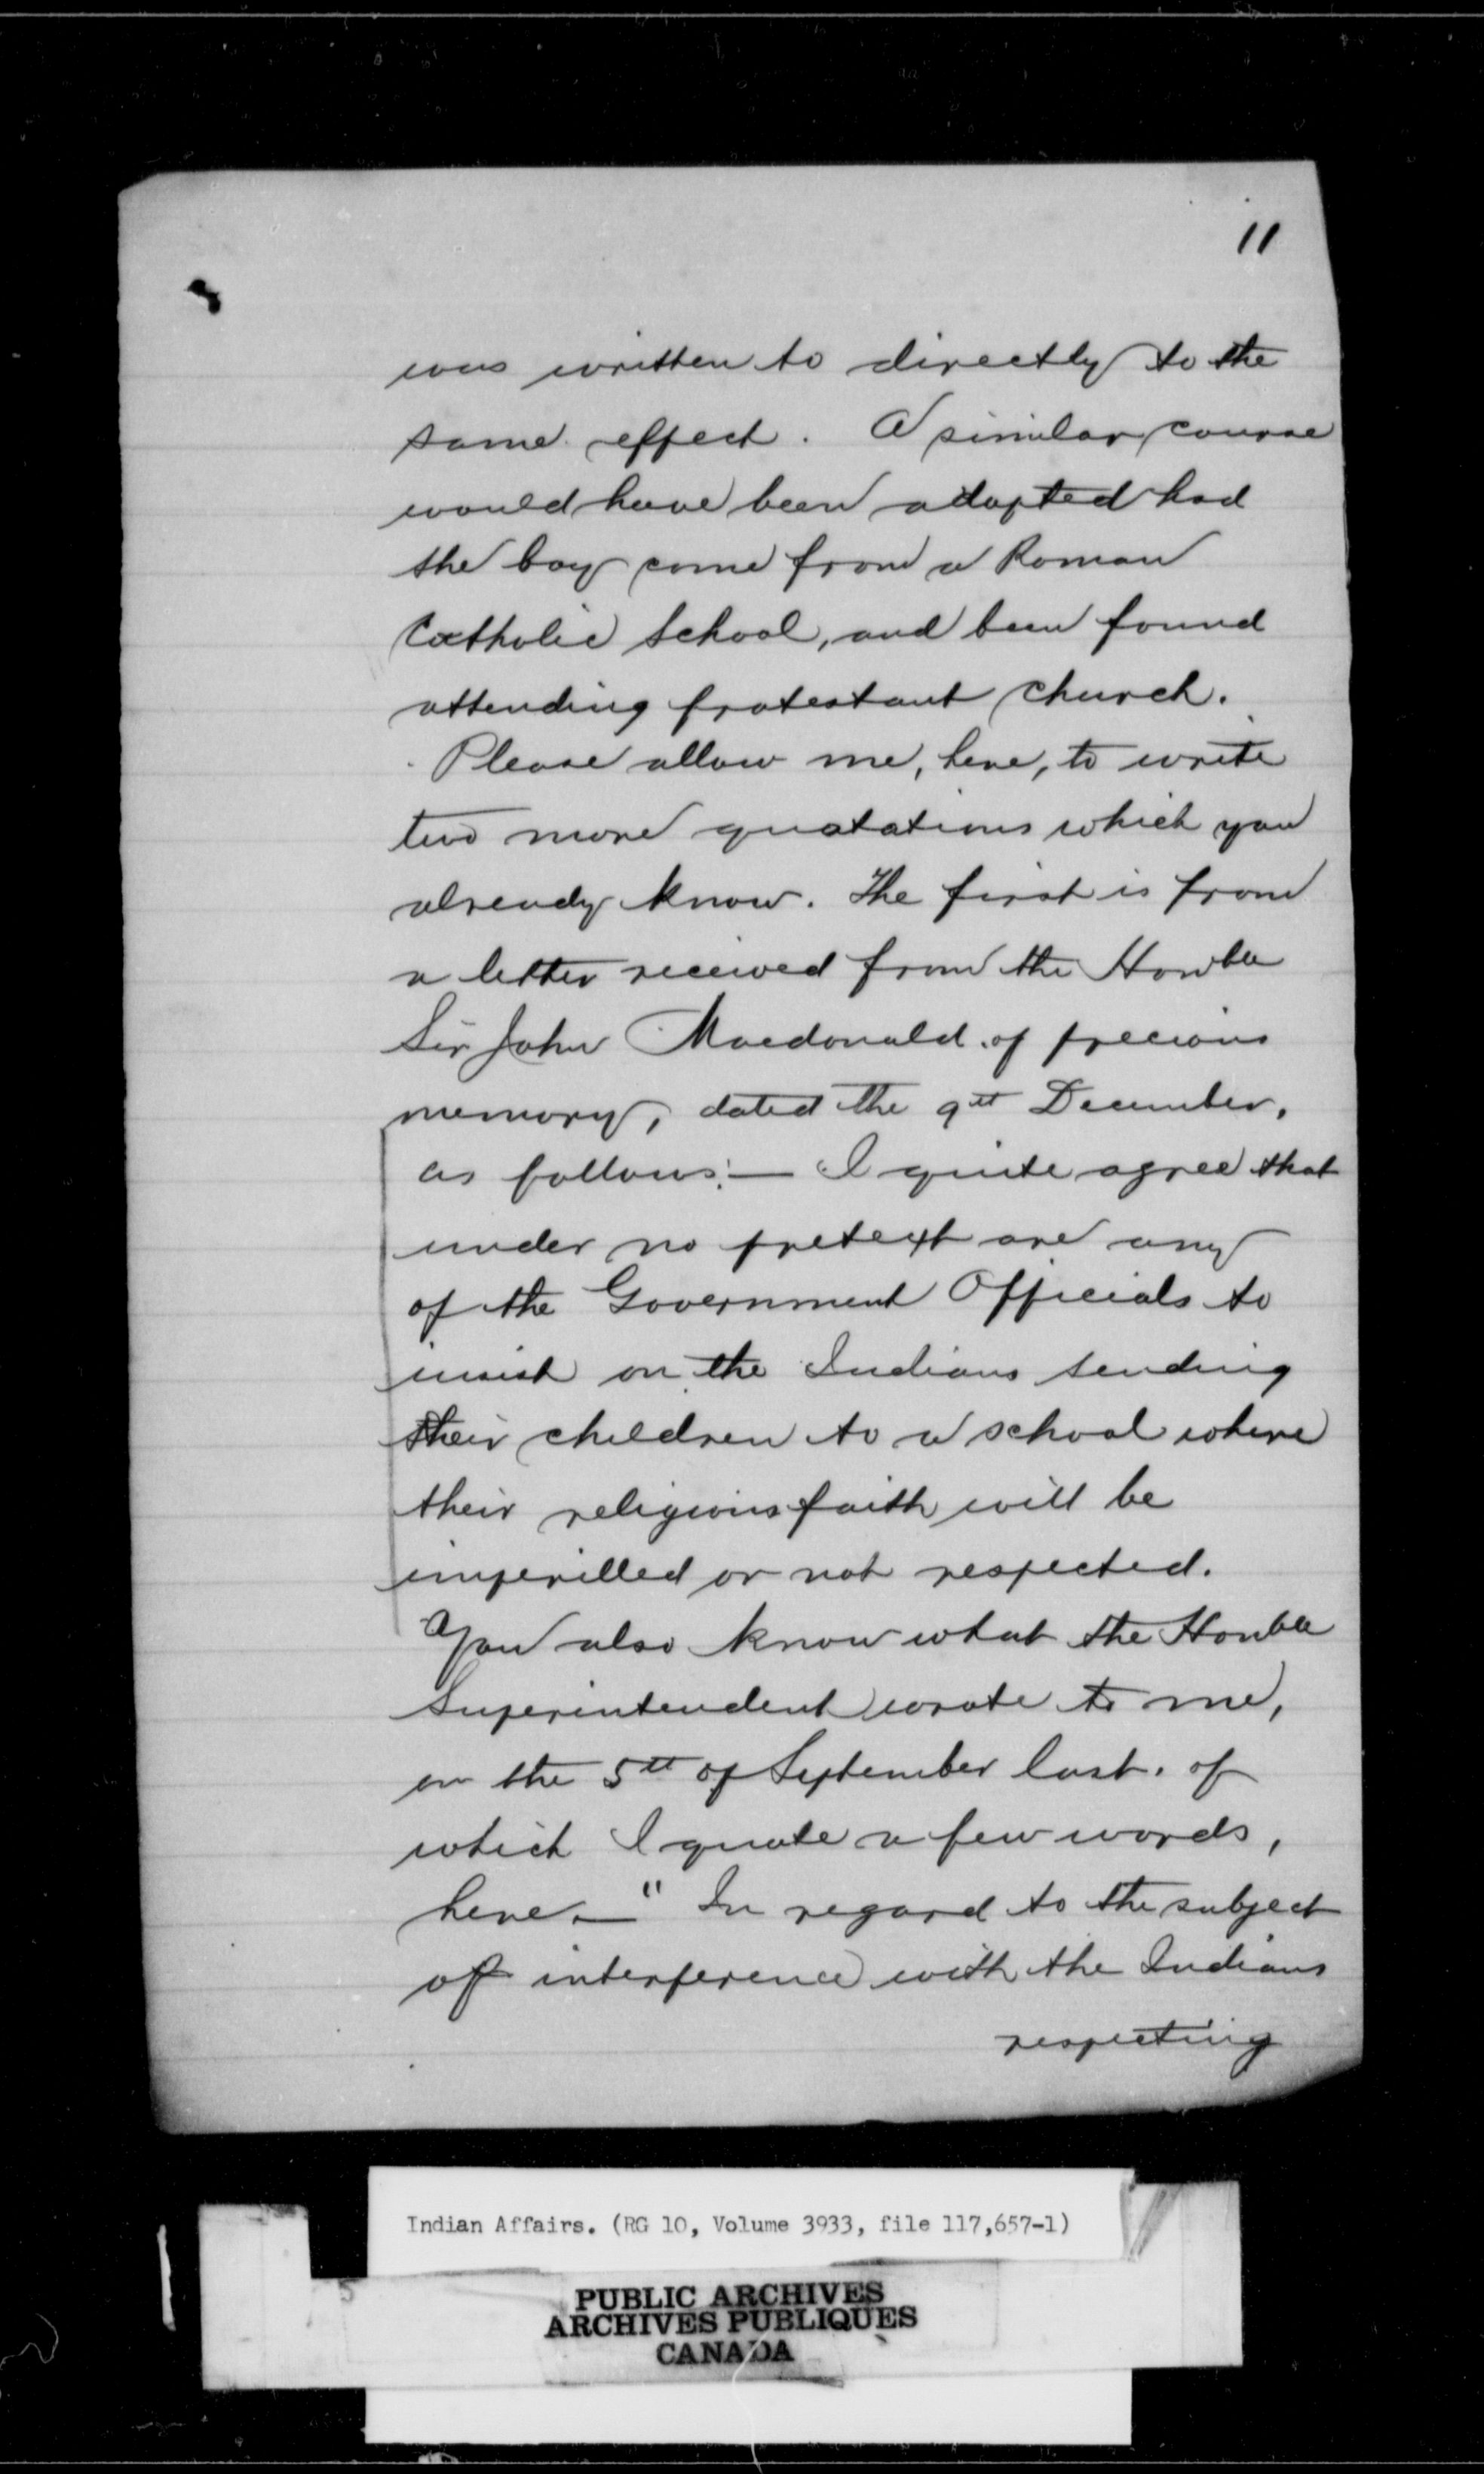 11
was written to directly to the
same effect. A similar course
would have been adopted had
the boy come from a Roman
Catholic School, and been found
attending protestant church.
Please allow me, here, to write
two more quotations which you
already know. The first is from
a letter received from the Honble
Sir John Macdonald of precious
memory, dated the 9th December,
as follows:— I quite agree that
under no pretext are any
of the Government Officials to
insist on the Indians sending
their children to a school where
their religious faith will be
imperilled or not respected.
You also know what the Honble
Superintendent wrote to me,
on the 5th of September last. of
which I quote a few words,
here.— " In regard to the subject
of interference with the Indians
respecting
Indian Affairs. (RG 10, Volume 3933, file 117,657-1)
PUBLIC ARCHIVES
ARCHIVES PUBLIQUES
CANADA